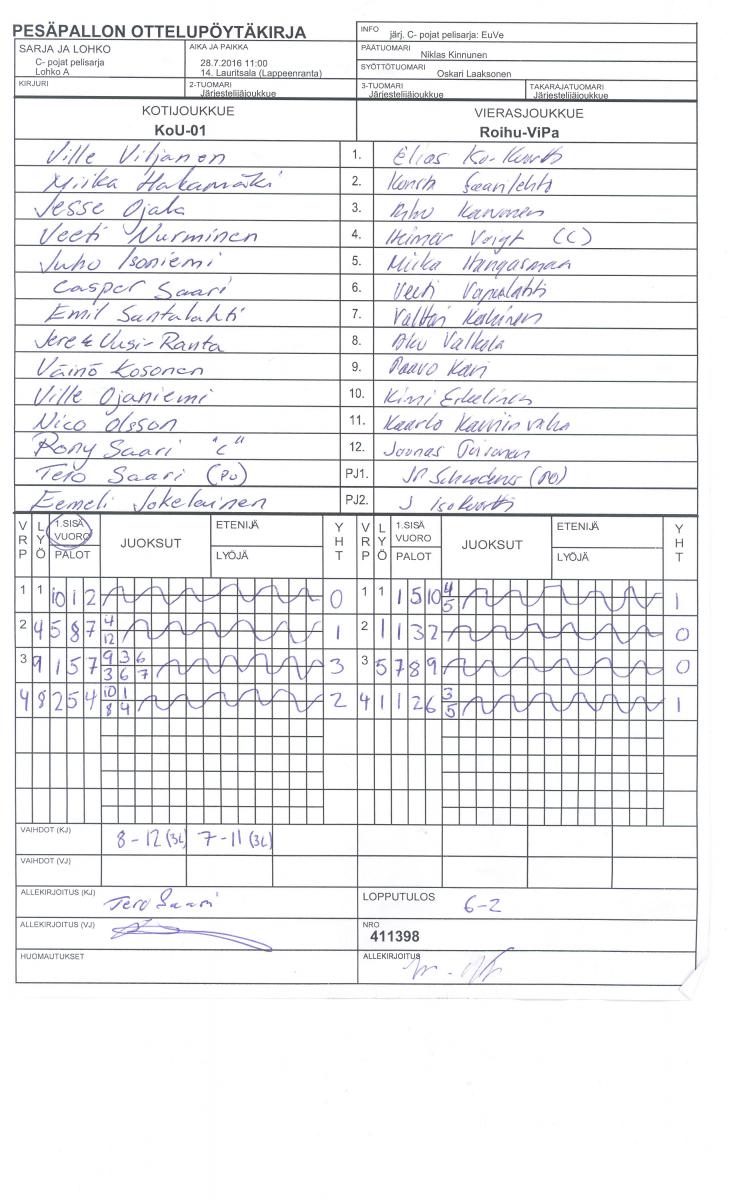 PESÄPALLON OTTELUPÖYTÄKIRJA
INFO järj. C- pojat pelisarja: EuVe
SARJA JA LOHKO
C- pojat pelisarja
Lohko A
AIKA JA PAIKKA
28.7.2016 11:00
14. Lauritsala (Lappeenranta)
PÄÄTUOMARI
Niklas Kinnunen
SYÖTTÖTUOMARI
Oskari Laaksonen
KIRJURI
2-TUOMARI
Järjestelijäjoukkue
3-TUOMARI
Järjestelijäjoukkue
TAKARAJATUOMARI
Järjestelijäjoukkue
KOTIJOUKKUE VIERASJOUKKUE
KoU-01 Roihu-ViPa
Ville Viljanen 1. Elias
Miika Hakamäki 2. Saarilehto
Jesse Ojala 3.
Veeti Nurminen 4. Heimer Voigt (C)
Juho Isoniemi 5. Miika Hangasmaa
Casper Saari 6. Veeti Vapalahti
Emil Santalahti 7. Valtteri
Jere Uusi-Ranta 8. Aku Valkala
Väinö Kosonen 9. Paavo Kari
Ville Ojaniemi 10. Kimi
Nico Olsson 11. Kaarlo
Rony Saari "C" 12. Joonas
Tero Saari (PJ) PJ1. (PJ)
Eemeli Jokelainen PJ2. J Isokortti
VRP LYÖ 1.SISÄ VUORO PALOT JUOKSUT ETENIJÄ LYÖJÄ YHT VRP LYÖ 1.SISÄ VUORO PALOT JUOKSUT ETENIJÄ LYÖJÄ YHT
1 1 10 1 2 0 1 1 1 5 10 4/5 1
2 4 5 8 7 4/12 1 2 1 1 3 2 0
3 9 1 5 7 9/3 3/6 6/7 3 3 5 7 8 9 0
4 8 2 5 4 10/8 1/4 2 4 1 1 2 6 3/5 1
VAIHDOT (KJ) 8-12 (3L) 7-11 (3L)
VAIHDOT (VJ)
ALLEKIRJOITUS (KJ) Tero Saari
LOPPUTULOS 6-2
ALLEKIRJOITUS (VJ)
NRO
411398
HUOMAUTUKSET
ALLEKIRJOITUS